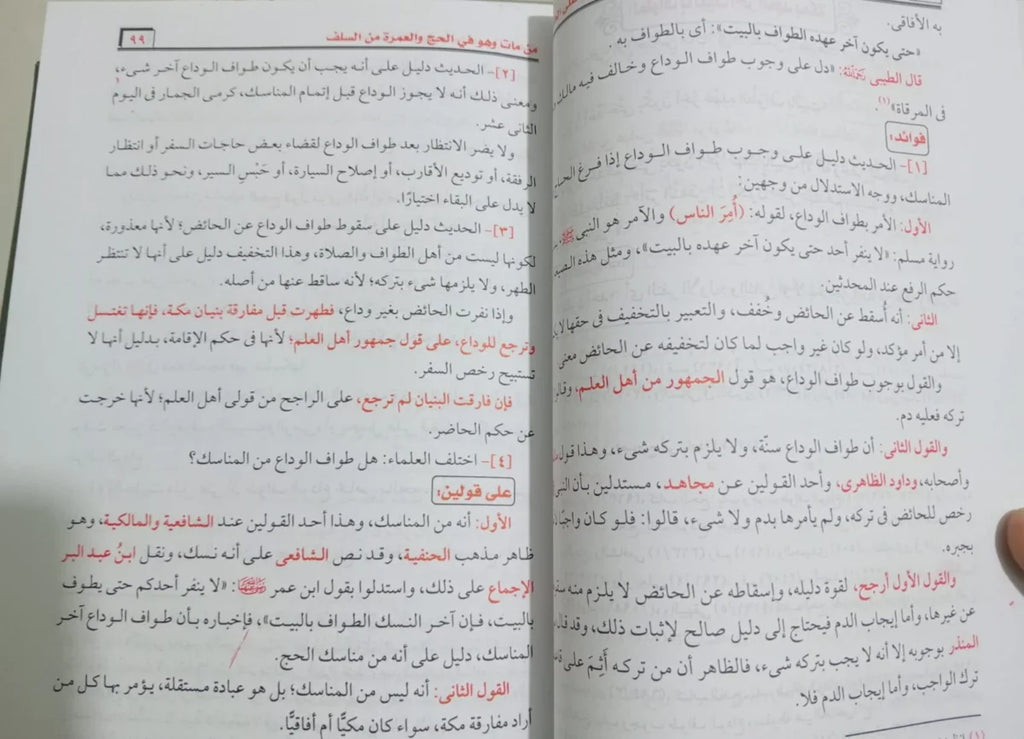 به الآفاقى.
«حتى يكون آخر عهده الطواف بالبيت»: أى بالطواف به.
قال الطيبى رحمه الله: «دل على وجوب طواف الوداع وخالف فيه مالك
فى المرقاة»(١).
فوائد:
[١]- الحديث دليل على وجوب طواف الوداع إذا فرغ
المناسك، ووجه الاستدلال من وجهين:
الأول: الأمر بطواف الوداع، لقوله: (أُمِرَ الناس) والآمر هو النبى ﷺ
رواية مسلم: «لا ينفر أحد حتى يكون آخر عهده بالبيت»، ومثل هذه
حكم الرفع عند المحدثين.
الثانى: أنه أُسقط عن الحائض وخُفف، والتعبير بالتخفيف فى حقها
إلا من أمر مؤكد، ولو كان غير واجب لما كان لتخفيفه عن الحائض معنى
والقول بوجوب طواف الوداع، هو قول الجمهور من أهل العلم،
تركه فعليه دم.
والقول الثانى: أن طواف الوداع سنّة، ولا يلزم بتركه شىء، وهذا قول
وأصحابه، وداود الظاهرى، وأحد القولين عن مجاهد، مستدلين بأن
رخص للحائض فى تركه، ولم يأمرها بدم ولا شىء، قالوا: فلو كان واجبًا
بجبره.
والقول الأول أرجح، لقوة دليله، وإسقاطه عن الحائض لا يلزم منه
عن غيرها، وأما إيجاب الدم فيحتاج إلى دليل صالح لإثبات ذلك، وقد
المنذر بوجوبه إلا أنه لا يجب بتركه شىء، فالظاهر أن من تركه أَثِمَ على
ترك الواجب، وأما إيجاب الدم فلا.
(١)
من مات وهو في الحج والعمرة من السلف
٩٩
[٢]- الحديث دليل على أنه يجب أن يكون طواف الوداع آخر شىء،
ومعنى ذلك أنه لا يجوز الوداع قبل إتمام المناسك، كرمى الجمار فى اليوم
الثانى عشر.
ولا يضر الانتظار بعد طواف الوداع لقضاء بعض حاجات السفر أو انتظار
الرفقة، أو توديع الأقارب، أو إصلاح السيارة، أو حَبْسِ السير، ونحو ذلك مما
لا يدل على البقاء اختيارًا.
[٣]- الحديث دليل على سقوط طواف الوداع عن الحائض؛ لأنها معذورة،
لكونها ليست من أهل الطواف والصلاة، وهذا التخفيف دليل على أنها لا تنتظر
الطهر، ولا يلزمها شىء بتركه؛ لأنه ساقط عنها من أصله.
وإذا نفرت الحائض بغير وداع، فطهرت قبل مفارقة بنيان مكة، فإنها تغتسل
وترجع للوداع، على قول جمهور أهل العلم؛ لأنها فى حكم الإقامة، بدليل أنها لا
تستبيح رخص السفر.
فإن فارقت البنيان لم ترجع، على الراجح من قولى أهل العلم؛ لأنها خرجت
عن حكم الحاضر.
[٤]- اختلف العلماء: هل طواف الوداع من المناسك؟
على قولين:
الأول: أنه من المناسك، وهذا أحد القولين عند الشافعية والمالكية، وهو
ظاهر مذهب الحنفية، وقد نص الشافعى على أنه نسك، ونقل ابنُ عبد البر
الإجماع على ذلك، واستدلوا بقول ابن عمر: «لا ينفر أحدكم حتى يطوف
بالبيت، فإن آخر النسك الطواف بالبيت»، فإخباره بأن طواف الوداع آخر
المناسك، دليل على أنه من مناسك الحج.
القول الثانى: أنه ليس من المناسك؛ بل هو عبادة مستقلة، يؤمر بها كل من
أراد مفارقة مكة، سواء كان مكيًّا أم أفاقيًّا.